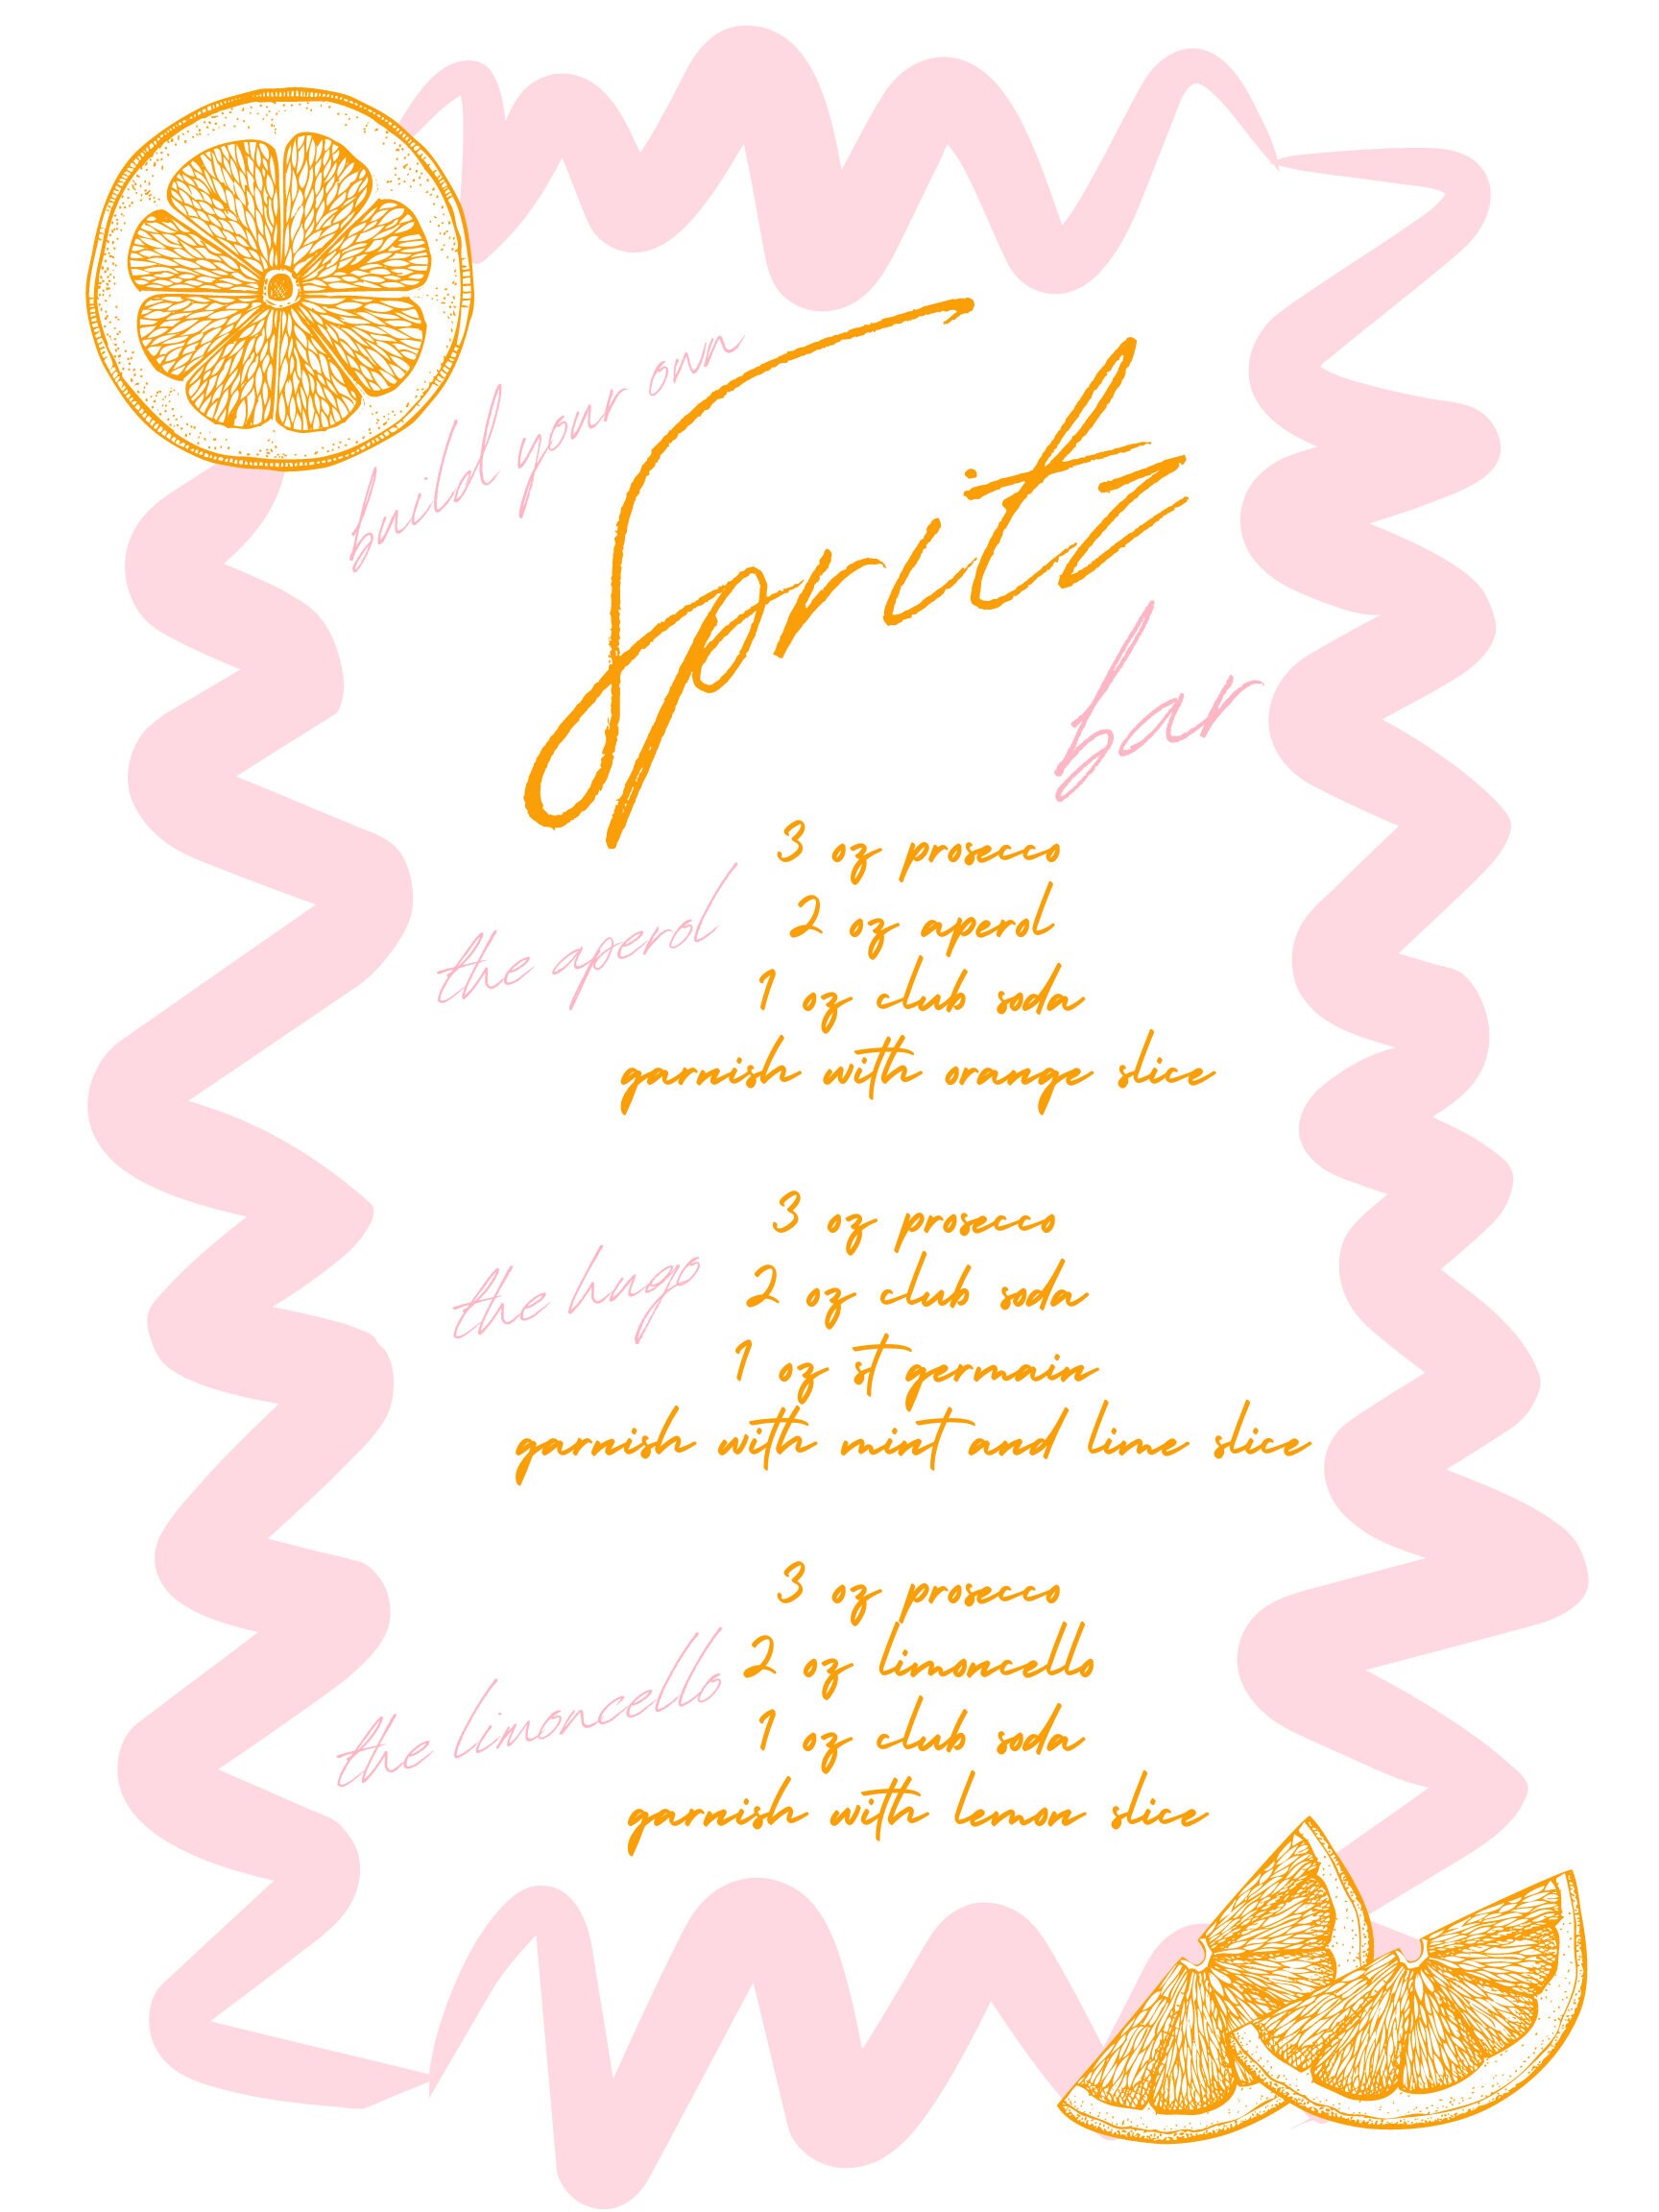 build your own
Spritz
bar
the aperol
3 oz prosecco
2 oz aperol
1 oz club soda
garnish with orange slice
the hugo
3 oz prosecco
2 oz club soda
1 oz st germain
garnish with mint and lime slice
the limoncello
3 oz prosecco
2 oz limoncello
1 oz club soda
garnish with lemon slice